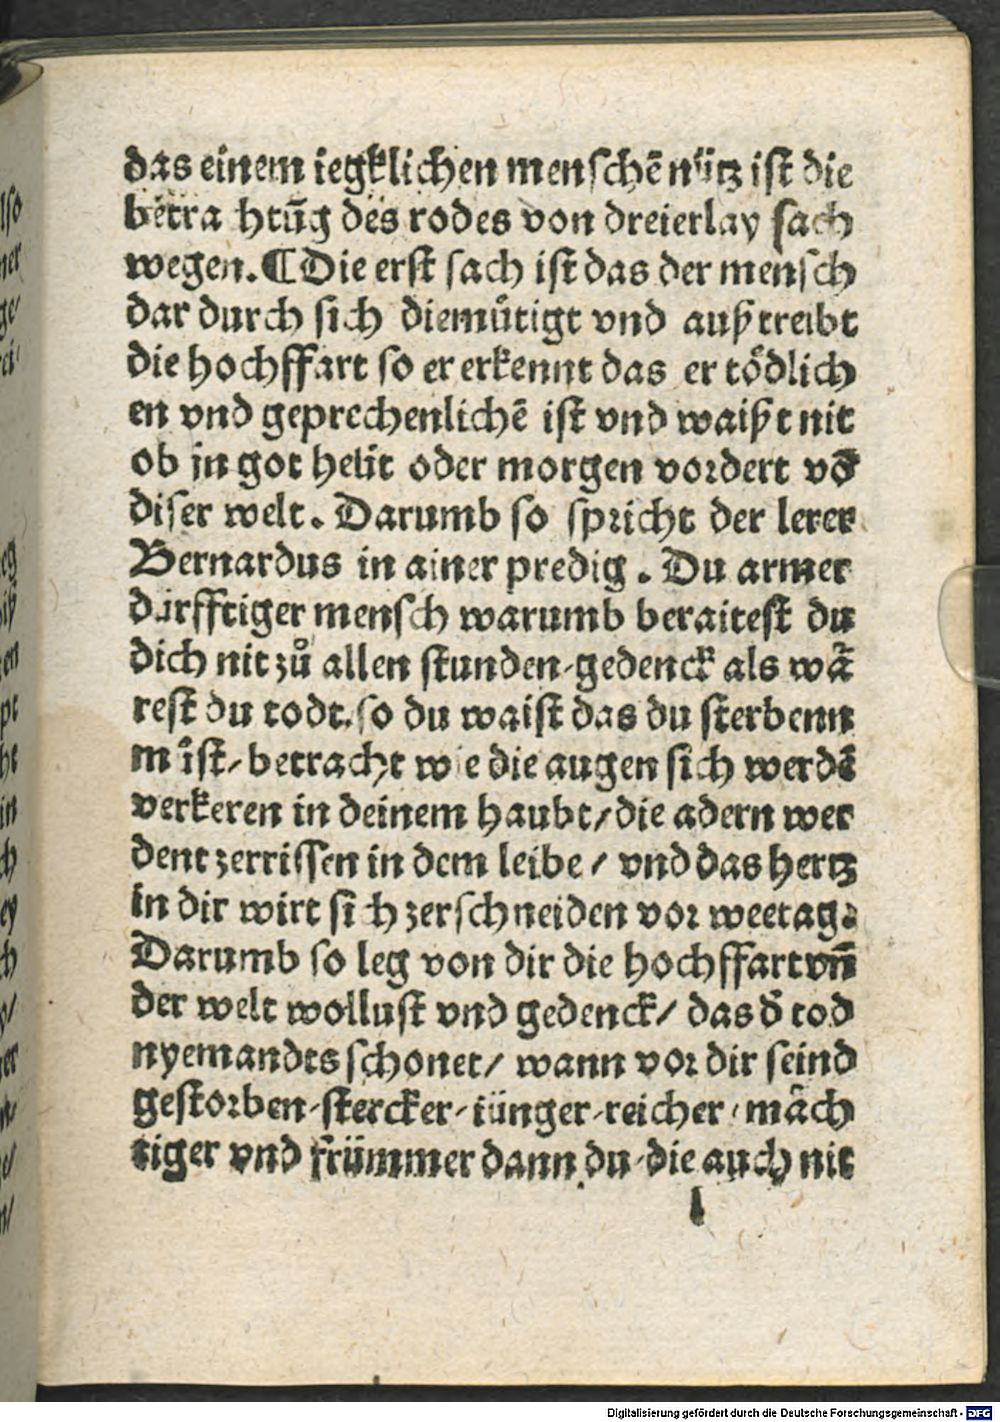 das einem iegklichen menschē nütz ist die
betrachtūg des todes von dreierlay sach
wegen. ¶ Die erst sach ist das der mensch
dar durch sich diemuͤtigt vnd außtreibt
die hochffart so er erkennt das er toͤdlich
en vnd geprechenlichē ist vnd waißt nit
ob in got heüt oder morgen vordert vō
diser welt. Darumb so spricht der lerer
Bernardus in ainer predig. Du armer
dürfftiger mensch warumb beraitest du
dich nit zů allen stunden-gedenck als waͤ
rest du todt. so du waist das du sterbenn
můst/ betracht wie die augen sich werdē
verkeren in deinem haubt/ die adern wer
dent zerrissen in dem leibe / vnd das hertz
in dir wirt sich zerschneiden vor weetag.
Darumb so leg von dir die hochffart vñ
der welt wollust vnd gedenck/ das d̄ tod
nyemandts schonet/ wann vor dir seind
gestorben-stercker-iünger-reicher-maͤch
tiger vnd frümmer dann du-die auch nit
Digitalisierung gefördert durch die Deutsche Forschungsgemeinschaft - DFG